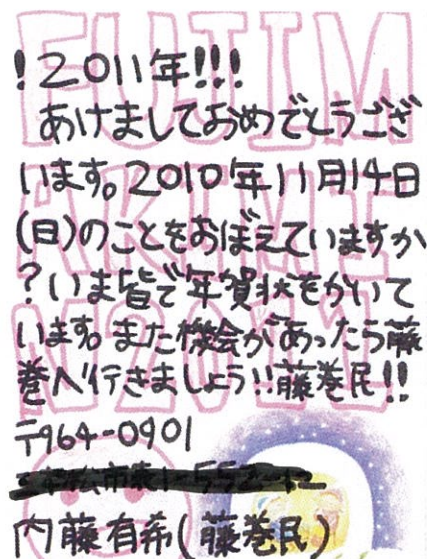 FUJIM
AKIMI
N2011
!2011年!!!
あけましておめでとうござ
います。2010年11月14日
(日)のことをおぼえていますか
?いま皆で年賀状をかいて
います。また機会があったら藤
巻へ行きましょう!!藤巻民!!
〒964-0901
内藤有希(藤巻民)